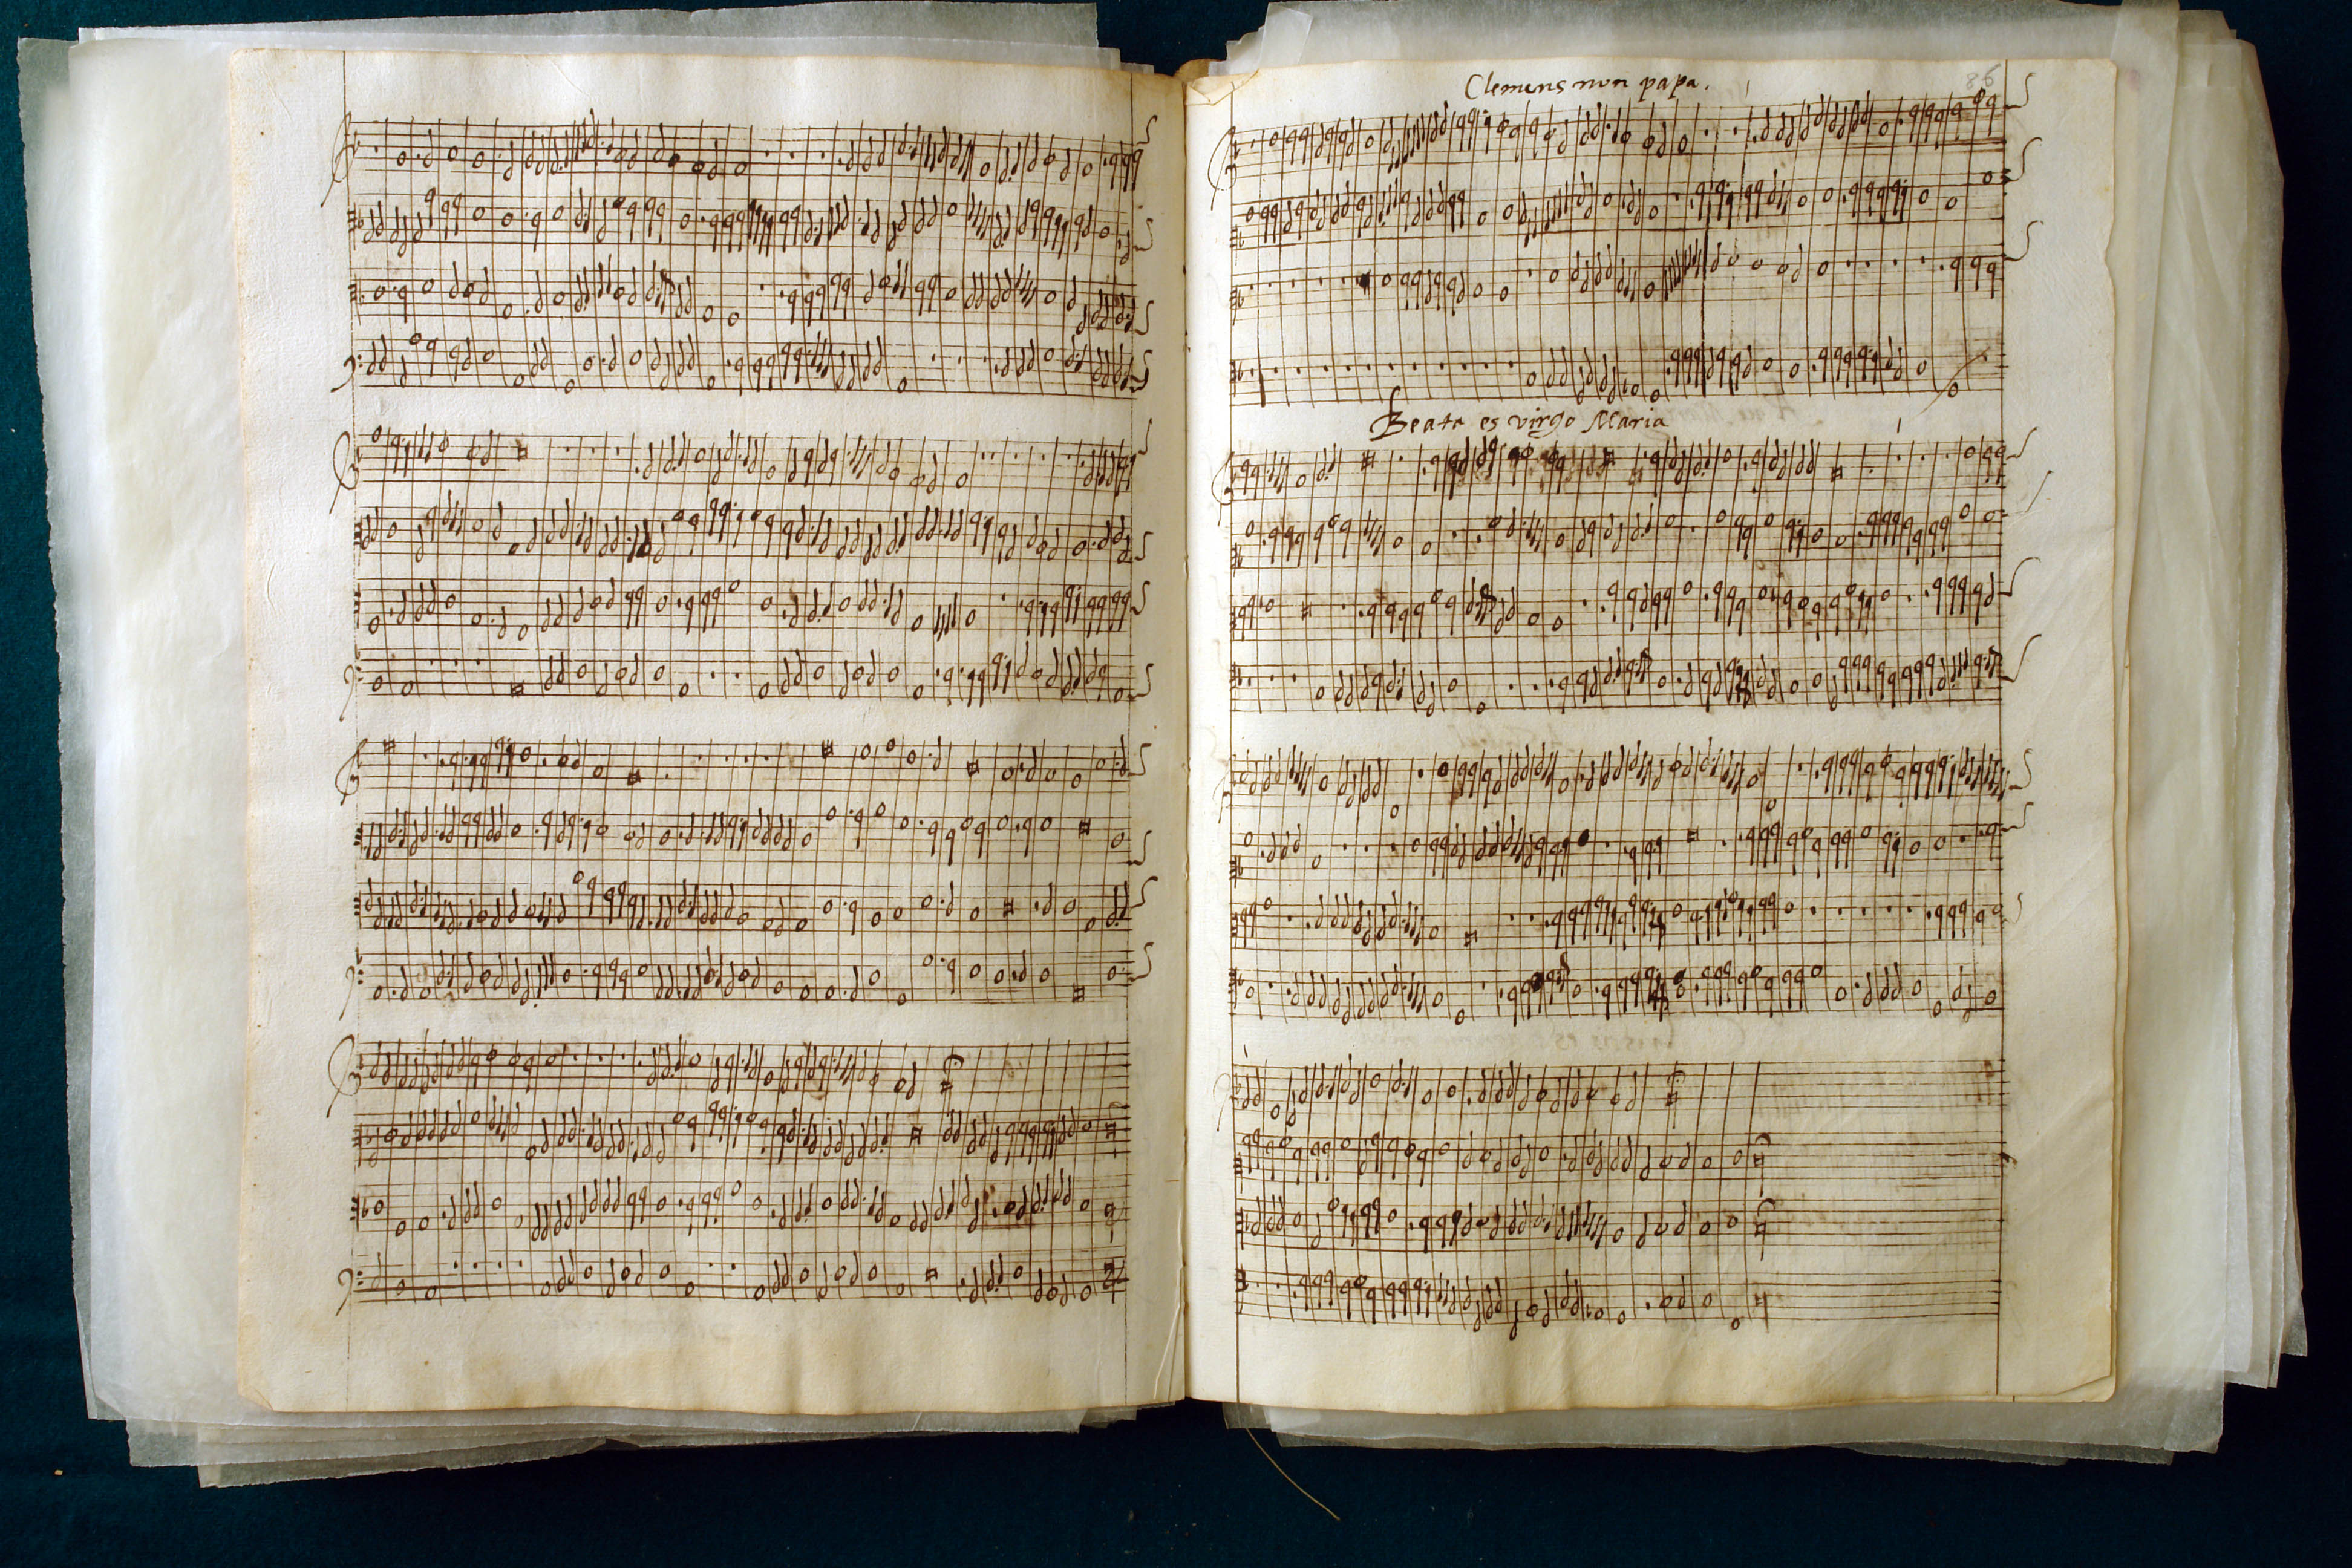 Clemens non papa.
86
Beata es virgo Maria